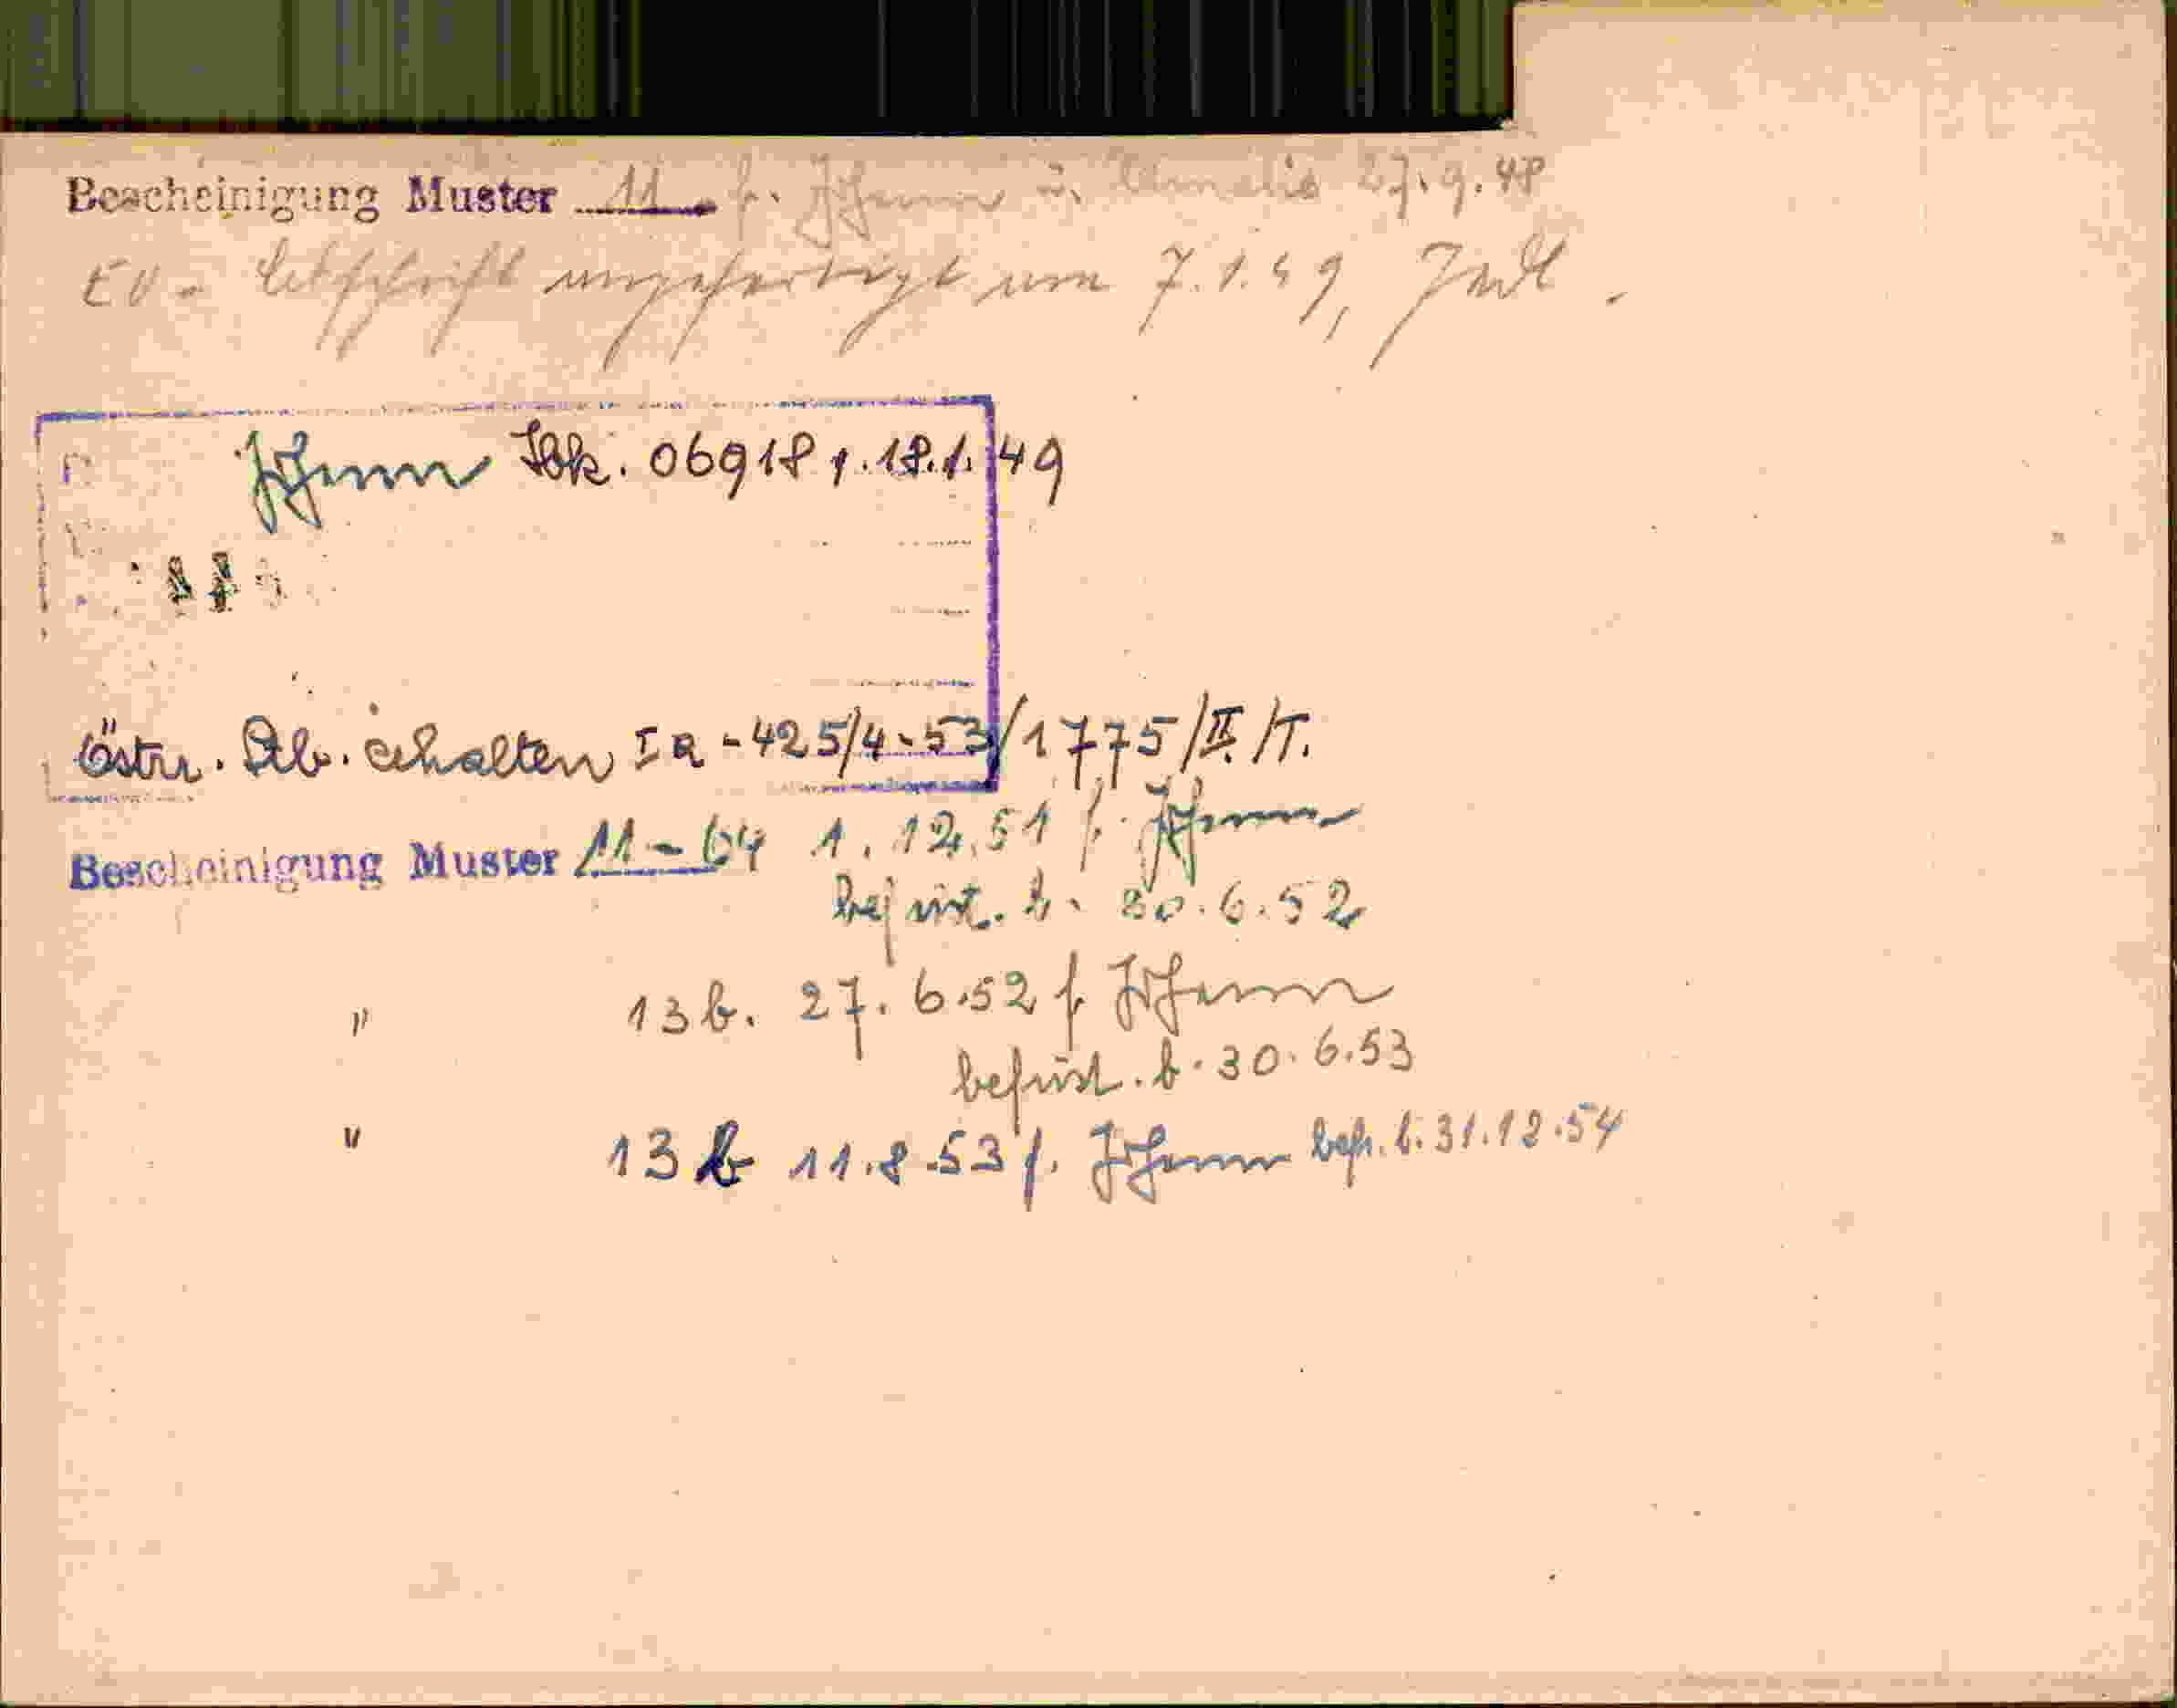 Bescheinigung Muster 11 f. Johann u. Amalie 27.9.48
EV- angefertigt am 7.1.49,
Johann Sbk. 06918 v. 18.1.49
Östr. Stb. erhalten I a - 425/4-53/1775/II./T.
Bescheinigung Muster 11-64 1.12.51 f. Johann
befrist. b. 30.6.52
" 13 b. 27.6.52 f. Johann
befrist. b. 30.6.53
" 13 b 11.8.53 f. Johann befr. b. 31.12.54